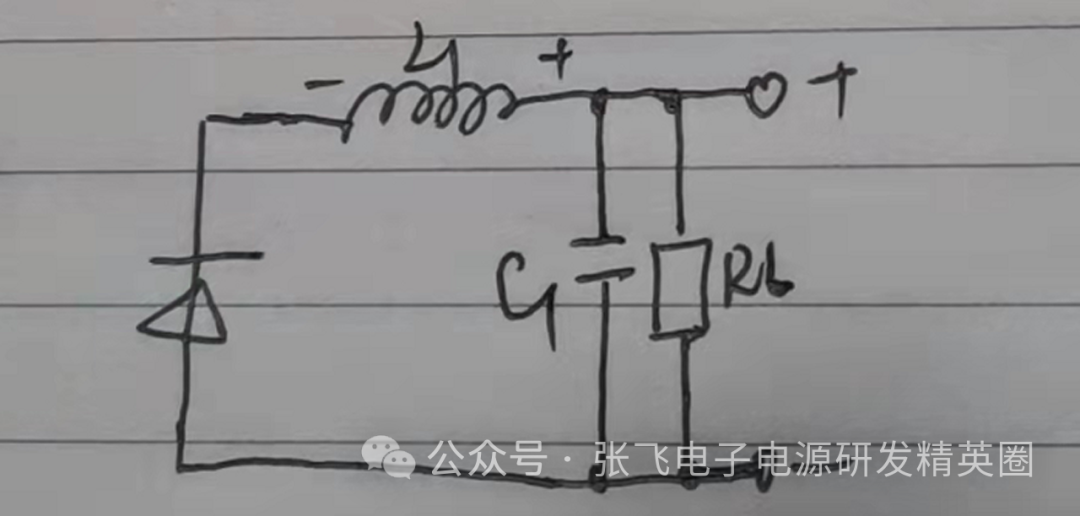 L1
- +
+
C1
R6
公众号 · 张飞电子电源研发精英圈